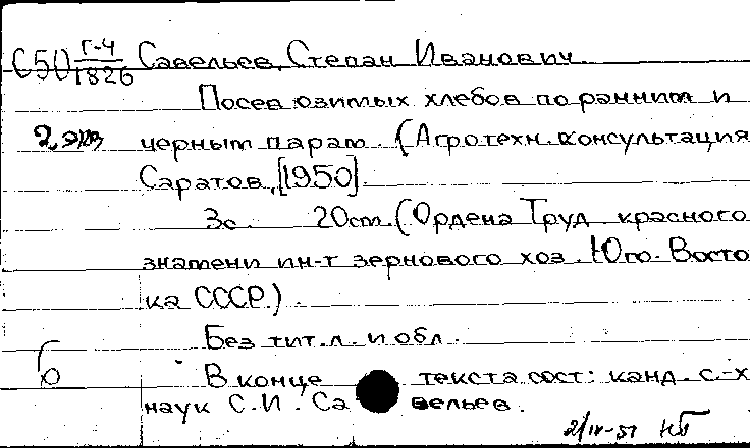 С50 Г-4/1826 Савельев, Степан Иванович.
Посев озимых хлебов по ранним и
2 экз черным парам. (Агротехн. консультация
Саратов, [1950].
3с. 20см. (Ордена Труд. красного
знамени ин-т зернового хоз. Юго-Восто
ка СССР.)
Без тит. л. и обл.
В конце текста сост: канд. с.-х
наук С.И. Савельев.